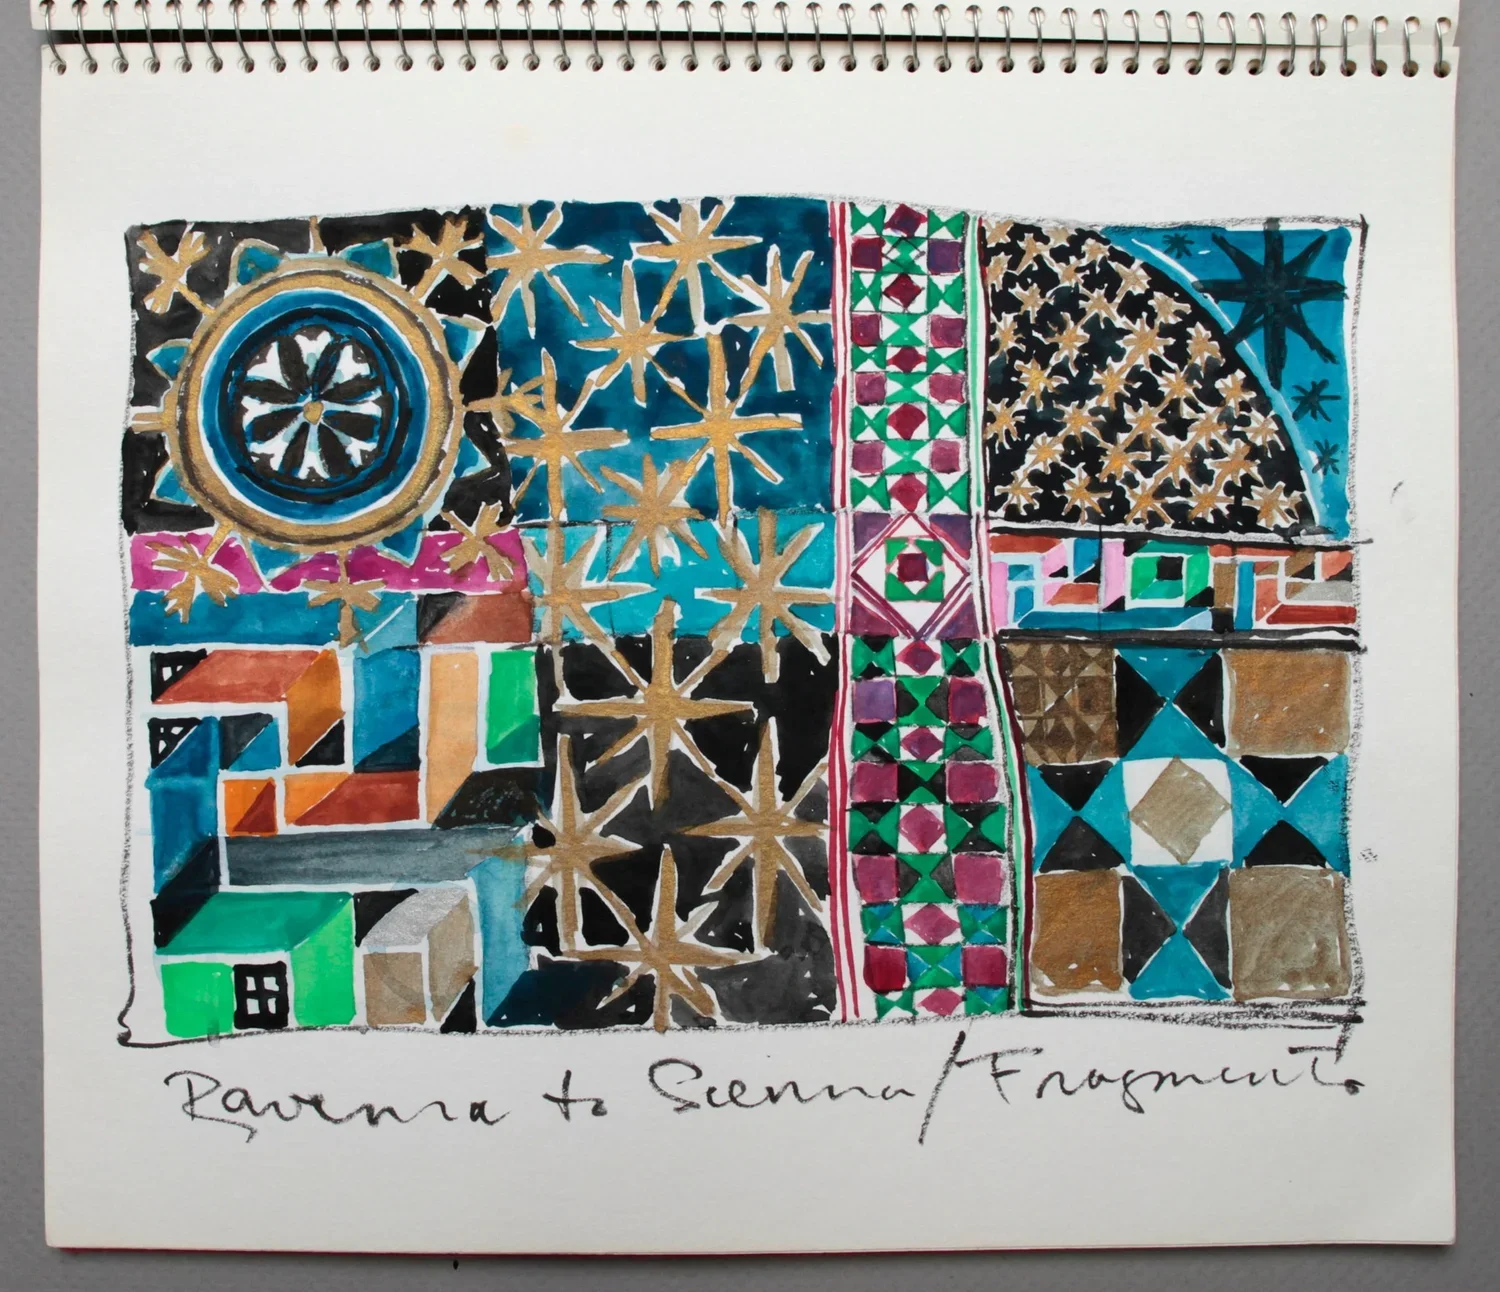 Ravenna to Sienna/Fragments